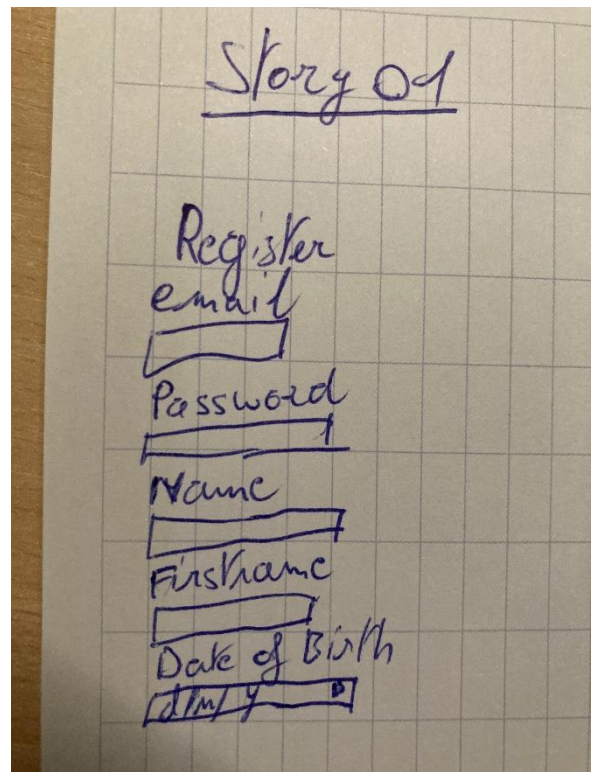 Story 01
Register
email
Password
Name
Firstname
Date of Birth
d/m/y